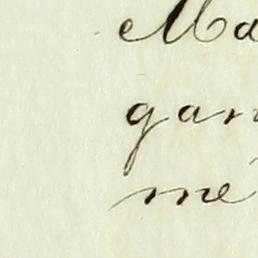 Ma
gar
me